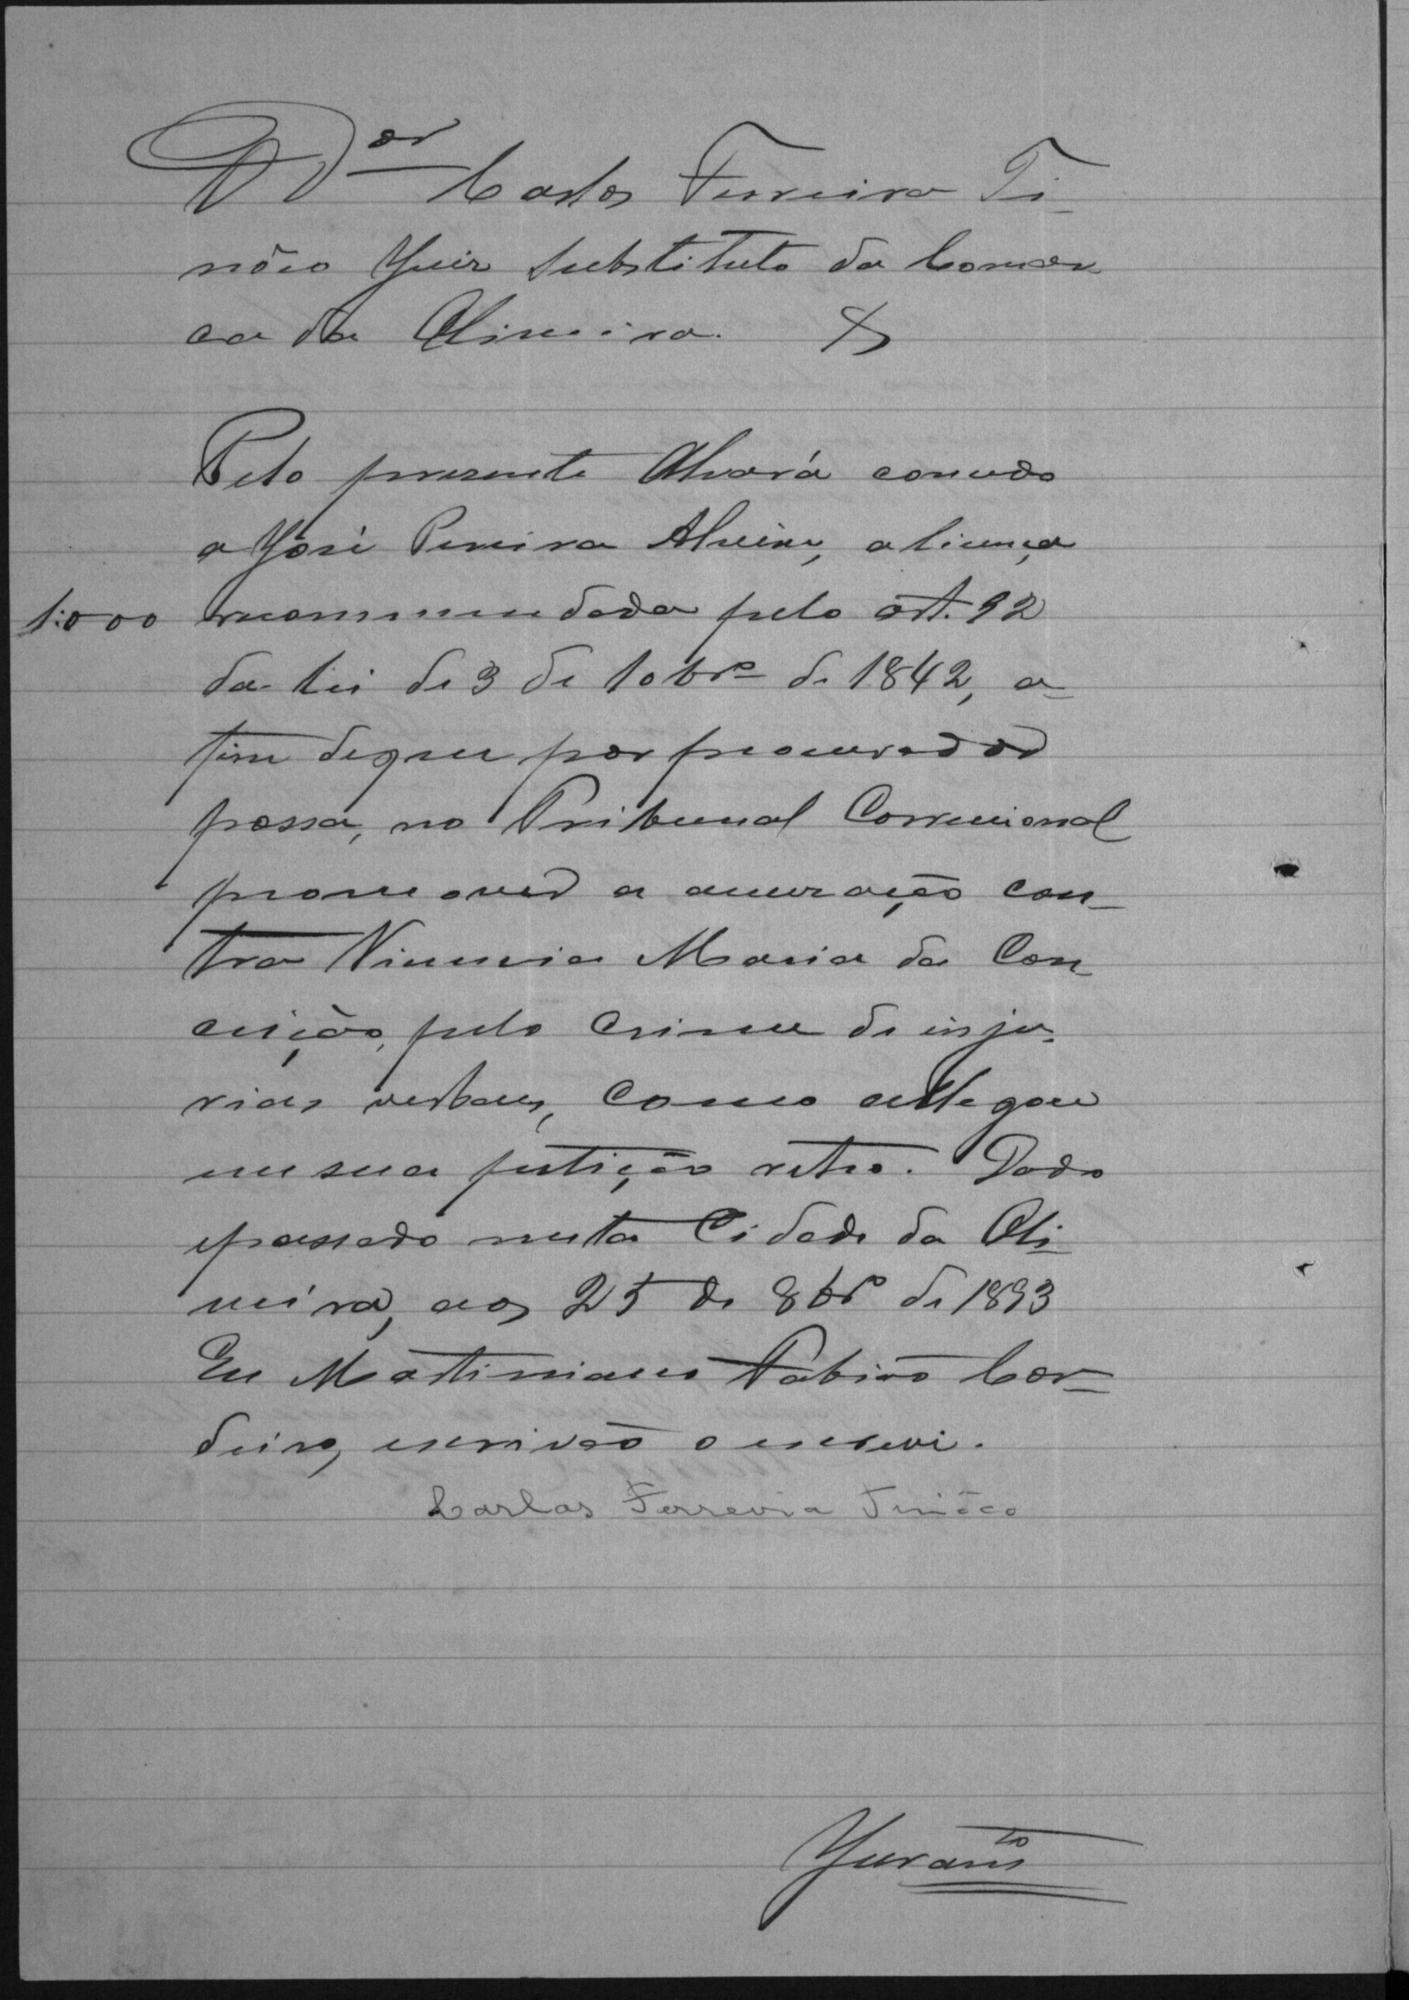 O Dor Carlos Ferreira Ti-
nôco Juiz Substituto da Comar
ca da Oliveira. &
Pelo presente Alvará concedo
a José Pereira Alvim, a licença
1:000 recommendada pelo art. 92
da lei de 3 de 10brº de 1842, a-
fim de que por procurador
possa, no Tribunal Correcional
promover a accusação con-
tra Vicencia Maria da Con
ceição, pelo crime de inju-
rias verbaes, como allegou
em sua petição retro. Dado
e passado nesta Cidade da Oli-
veira, aos 25 de 8brº de 1893
Eu Martiniano Fabião Cor-
deiro, escrivão o escrevi.
Carlos Ferreira Tinôco
Juramto